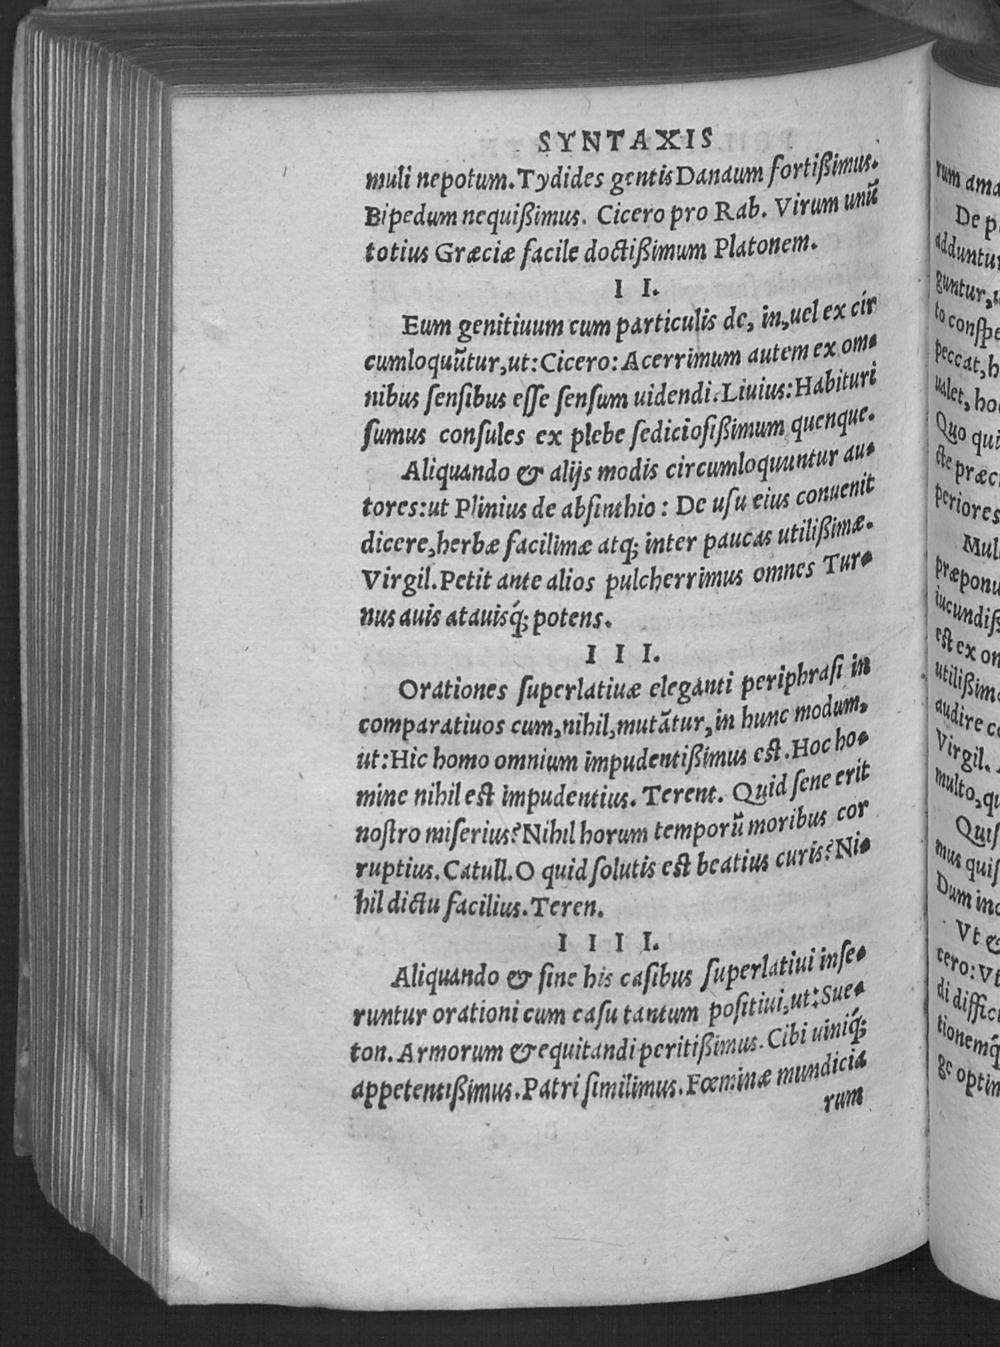 SYNTAXIS
muli nepotum. Tydides gentis Danaum fortißimus.
Bipedum nequißimus. Cicero pro Rab. Virum unũ
totius Græciæ facile doctißimum Platonem.
I I.
Eum genitiuum cum particulis de, in, uel ex cir
cumloquũtur, ut: Cicero: Acerrimum autem ex om-
nibus ſenſibus eſſe ſenſum uidendi. Liuius: Habituri
ſumus conſules ex plebe ſedicioſißimum quenque.
Aliquando & alijs modis circumloquuntur au-
tores: ut Plinius de abſinthio: De uſu eius conuenit
dicere, herbæ facilimæ atq; inter paucas utilißimæ.
Virgil. Petit ante alios pulcherrimus omnes Tur-
nus auis atauisq́; potens.
I I I.
Orationes ſuperlatiuæ eleganti periphraſi in
comparatiuos cum, nihil, mutãtur, in hunc modum,
ut: Hic homo omnium impudentißimus est. Hoc ho-
mine nihil est impudentius. Terent. Quid ſene erit
noſtro miſerius? Nihil horum temporũ moribus cor
ruptius. Catull. O quid ſolutis est beatius curis? Ni-
hil dictu facilius. Teren.
I I I I.
Aliquando & ſine his caſibus ſuperlatiui inſe-
runtur orationi cum caſu tantum poſitiui, ut: Sue-
ton. Armorum & equitandi peritißimus. Cibi uiniq́;
appetentißimus. Patri ſimilimus. Fœminæ mundicia
rum
rum ama
De p
adduntur
guntur, u
to conſpe
peccat, h
ualet, hoc
Quo qui
ſte præci
periores
Mul
præponu
iucundiſ
est ex on
utilißim
audire c
Virgil.
multo, qu
Quiſ
mus quiſ
Dum inc
Vt &
cero: Vt
di diffici
tionemq́
ge optim